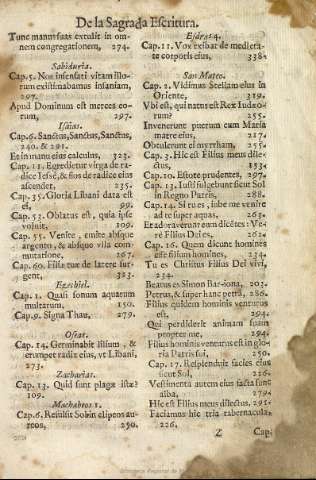 De la Sagrada Escritura.
Tunc manus suas extulit in om-
nem congregationem, 274.
Sabiduria.
Cap. 5. Nos insensati vitam illo-
rum existimabamus insaniam,
297.
Apud Dominum est merces eo-
rum, 297.
Isaias.
Cap. 6. Sanctus, Sanctus, Sanctus,
240. & 291.
Et in manu eius calculus, 323.
Cap. 11. Egredietur virga de ra-
dice Iessé, & flos de radice eius
ascendet, 235.
Cap. 35. Gloria Libani data est
ei, 99.
Cap. 53. Oblatus est, quia ipse
voluit, 109.
Cap. 55. Venite, emite absque
argento, & absque vlla com-
mutatione, 167.
Cap. 60. Filiæ tuæ de latere sur-
gent, 323.
Ezechiel.
Cap. 1. Quasi sonum aquarum
multarum, 150.
Cap. 9. Signa Thau, 279.
Oseas.
Cap. 14. Germinabit lilium, &
erumpet radix eius, vt Libani,
273.
Zacharias.
Cap. 13. Quid sunt plagæ istæ?
109.
Machabeos 1.
Cap. 6. Refulsit Sol in clipeos au-
reos, 290.
Esdras 4.
Cap. 11. Vox exibat de medieta-
te corporis eius, 338.
San Mateo.
Cap. 2. Vidimus Stellam eius in
Oriente, 319.
Vbi est, qui natus est Rex Iudæo-
rum? 255.
Invenerunt puerum cum Maria
matre eius, 217.
Obtulerunt ei myrrham, 255.
Cap. 3. Hic est Filius meus dile-
ctus, 153.
Cap. 10. Estote prudentes, 297.
Cap. 13. Iusti fulgebunt sicut Sol
in Regno Patris, 288.
Cap. 14. Si tu es, iube me venire
ad te super aquas, 263.
Et adoraverunt eum dicétes: Ve-
re Filius Dei es, 262.
Cap. 16. Quem dicunt homines
esse filium hominis, 234.
Tu es Christus Filius Dei vivi,
234.
Beatus es Simon Bar-iona, 203.
Petrus, & super hanc petra, 286.
Filius quidem hominis venturus
est, 294.
Qui perdiderit animam suam
propter me, 294.
Filius hominis venturus est in glo-
ria Patris sui, 250.
Cap. 17. Resplenduit facies eius
sicut Sol, 226.
Vestimenta autem eius facta sunt
alba, 279.
Hic est Filius meus dilectus, 291.
Faciamus hic tria tabernacula,
226.
Z Cap.